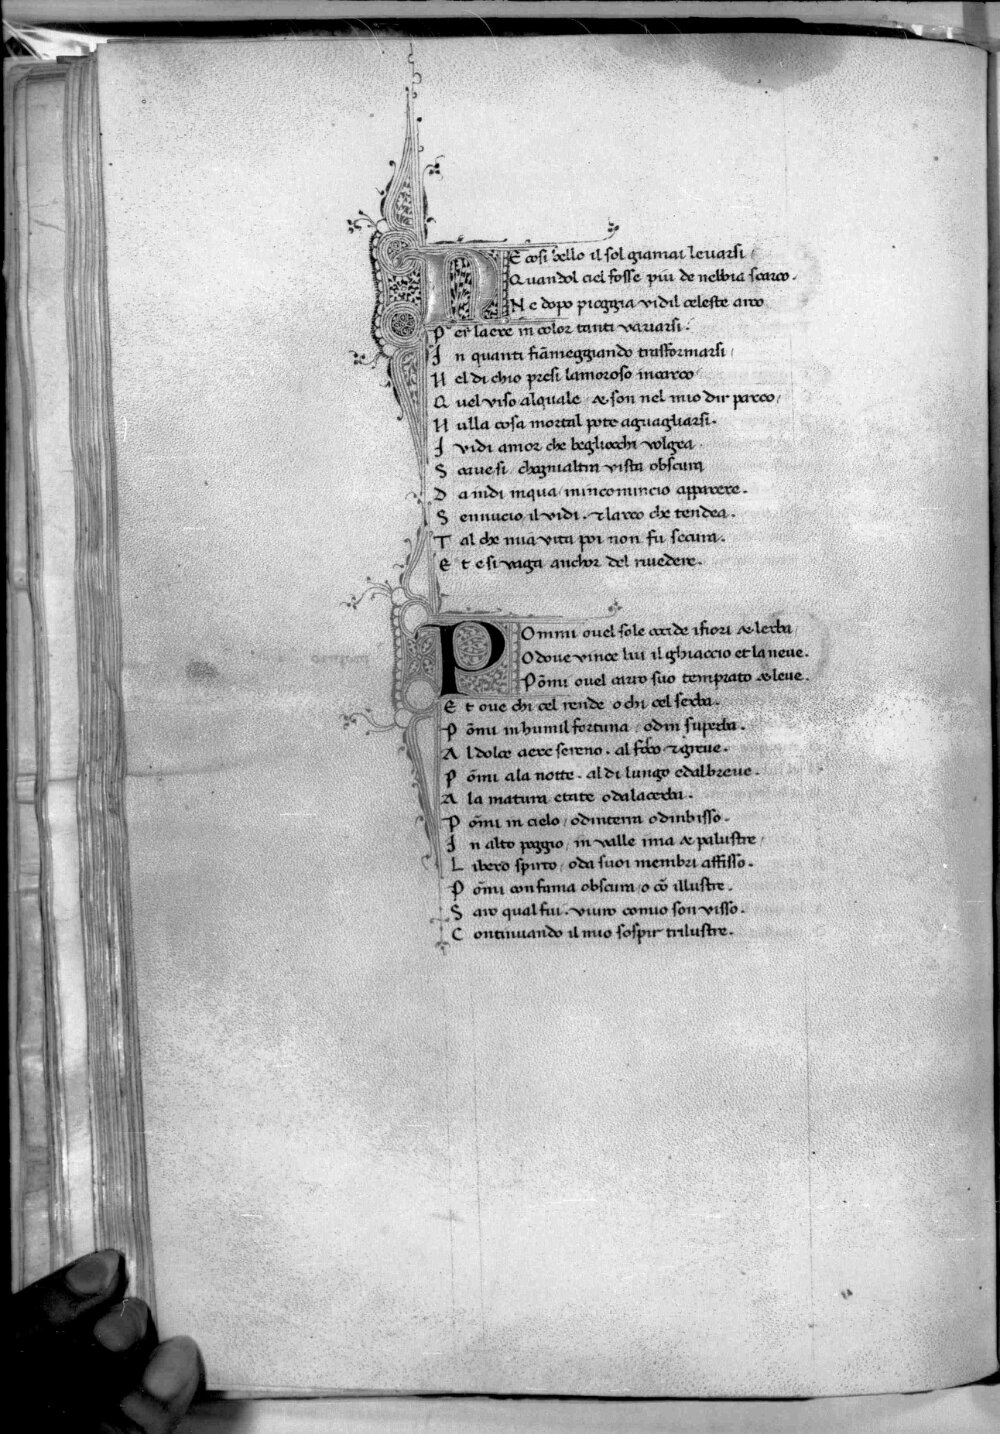 NE cosi bello il sol giamai levarsi /
Quandol ciel fosse piu de nebbia scarco.
Ne dopo pioggia vidil celeste arco
Per laere in color tanti variarsi.
In quanti fiāmeggiando trasformarsi /
Nel di chio presi lamoroso incarco
Quel viso alquale / & son nel mio dir parco /
Nulla cosa mortal pote aguagliarsi.
I vidi amor che begliocchi volgea
Soavesi / chognialtra vista obscura
Da indi inqua / mincomincio apparere.
Sennucio il vidi. & larco che tendea.
Tal che mia vita poi non fu secura.
Et e si vaga anchor del rivedere.
POmmi ovel sole occide ifiori & lerba /
Odove vince lui il ghiaccio et la neve.
Pōmi ovel carro suo temprato & leve.
Et ove chi cel rende o chi cel serba.
Pōmi in humil fortuna / odin superba.
Al dolce aere sereno. al fosco & greve.
Pōmi ala notte. al di lungo edalbreve.
Ala matura etate odalacerba.
Pōmi in cielo / odinterra odinbisso.
In alto poggio / in valle ima & palustre /
Libero spirto / oda suoi membri affisso.
Pōmi con fama obscura / o cō illustre.
Saro qual fui. vivro comio son visso.
Continuando il mio sospir trilustre.